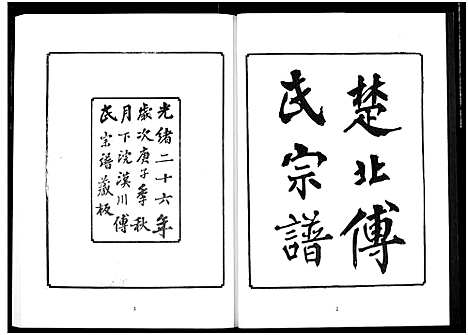 楚北傅
氏宗譜
光緒二十六年
歲次庚子季秋
月下浣漢川傅
氏宗譜藏板
2
3